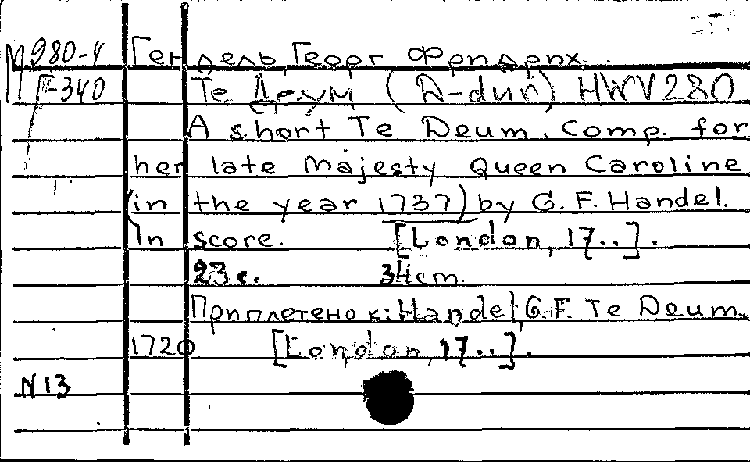 М980-4 Гендель, Георг Фридрих.
Г-340 Те Деум (D-dur) HWV280
A short Te Deum. Comp. for
her late Majesty Queen Caroline
(in the year 1737) by G. F. Handel.
In score. [London, 17..].
23 с. 34cm.
Приплетено к: Handel, G.F. Te Deum.
1720 [London, 17..].
N13